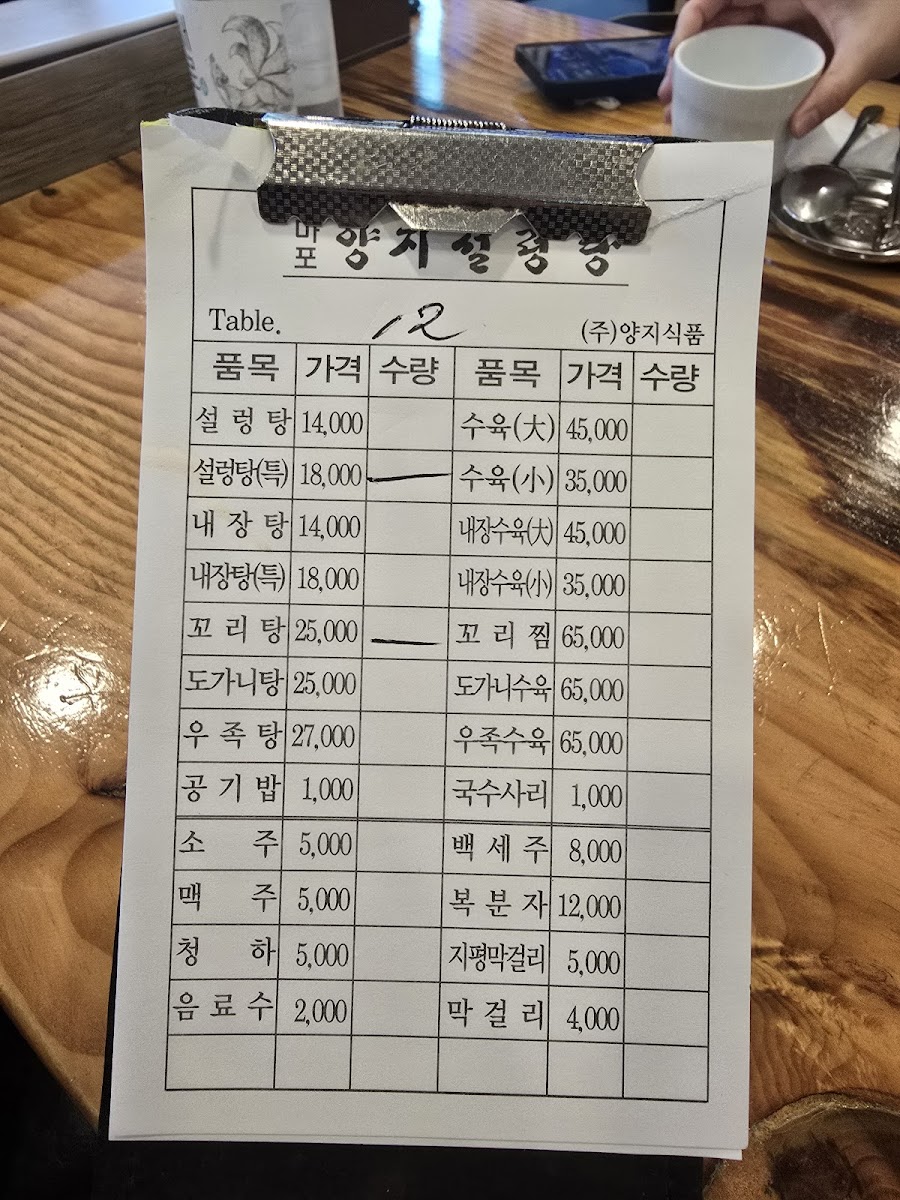 마포 양지설렁탕
Table. 12 (주)양지식품
품목 가격 수량 품목 가격 수량
설렁탕 14,000 수육(大) 45,000
설렁탕(특) 18,000 一 수육(小) 35,000
내장탕 14,000 내장수육(大) 45,000
내장탕(특) 18,000 내장수육(小) 35,000
꼬리탕 25,000 一 꼬리찜 65,000
도가니탕 25,000 도가니수육 65,000
우족탕 27,000 우족수육 65,000
공기밥 1,000 국수사리 1,000
소주 5,000 백세주 8,000
맥주 5,000 복분자 12,000
청하 5,000 지평막걸리 5,000
음료수 2,000 막걸리 4,000